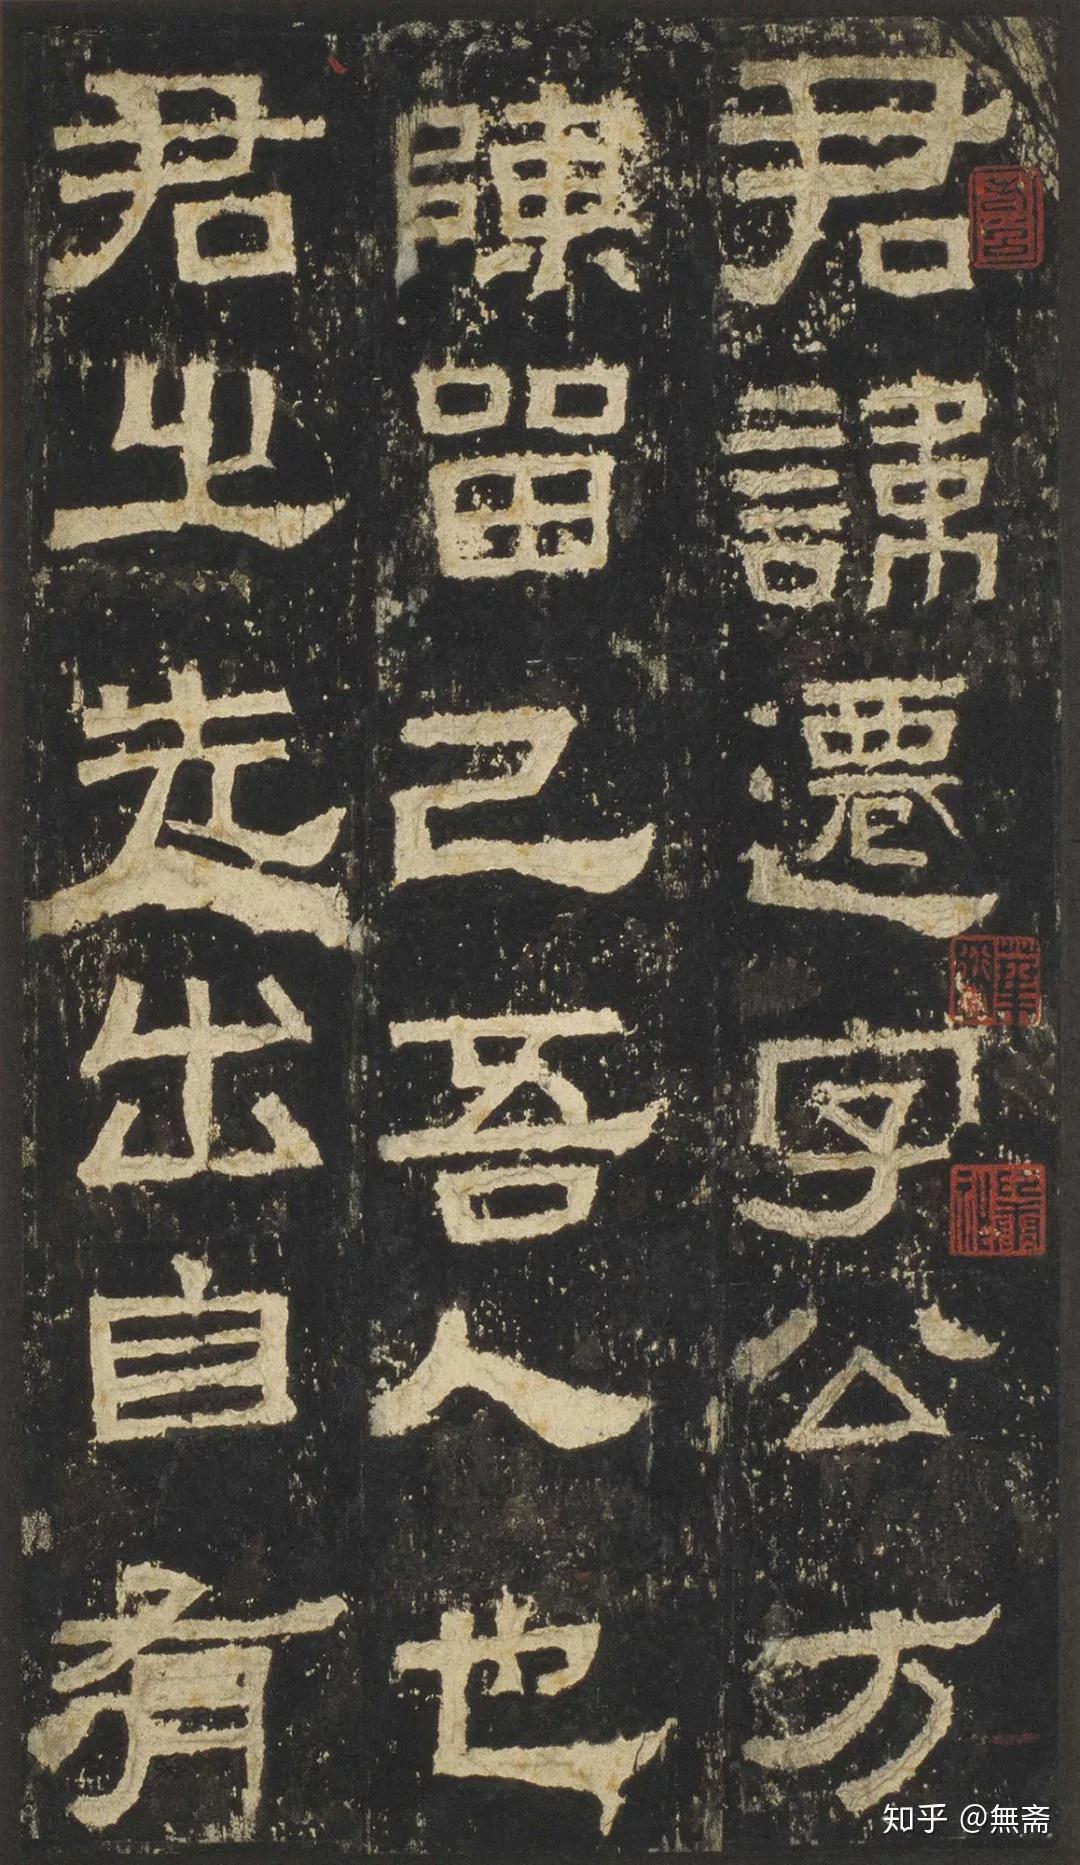 君諱遷字公方
陳留己吾人也
君之先出自有
知乎 @無斋